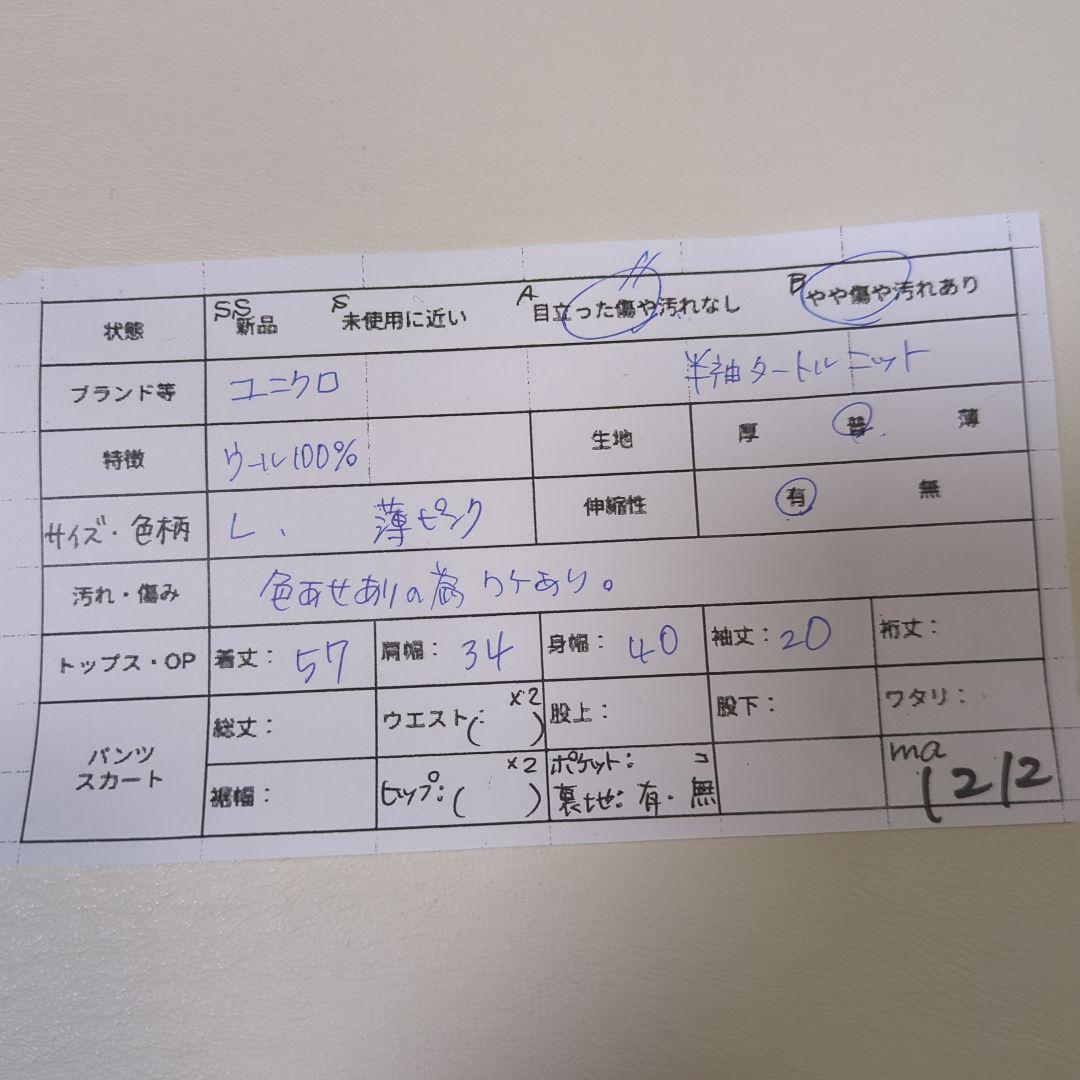 状態 SS 新品 S 未使用に近い A 目立った傷や汚れなし B やや傷や汚れあり
ブランド等 ユニクロ 半袖タートルニット
特徴 ウール100% 生地 厚 普 薄
サイズ・色柄 L、 薄ピンク 伸縮性 有 無
汚れ・傷み 色あせありの為ワケあり。
トップス・OP 着丈: 57 肩幅: 34 身幅: 40 袖丈: 20 裄丈:
パンツ スカート 総丈: ウエスト: ×2 ( ) 股上: 股下: ワタリ:
裾幅: ヒップ: ×2 ( ) ポケット: コ 裏地: 有・無 ma 1212